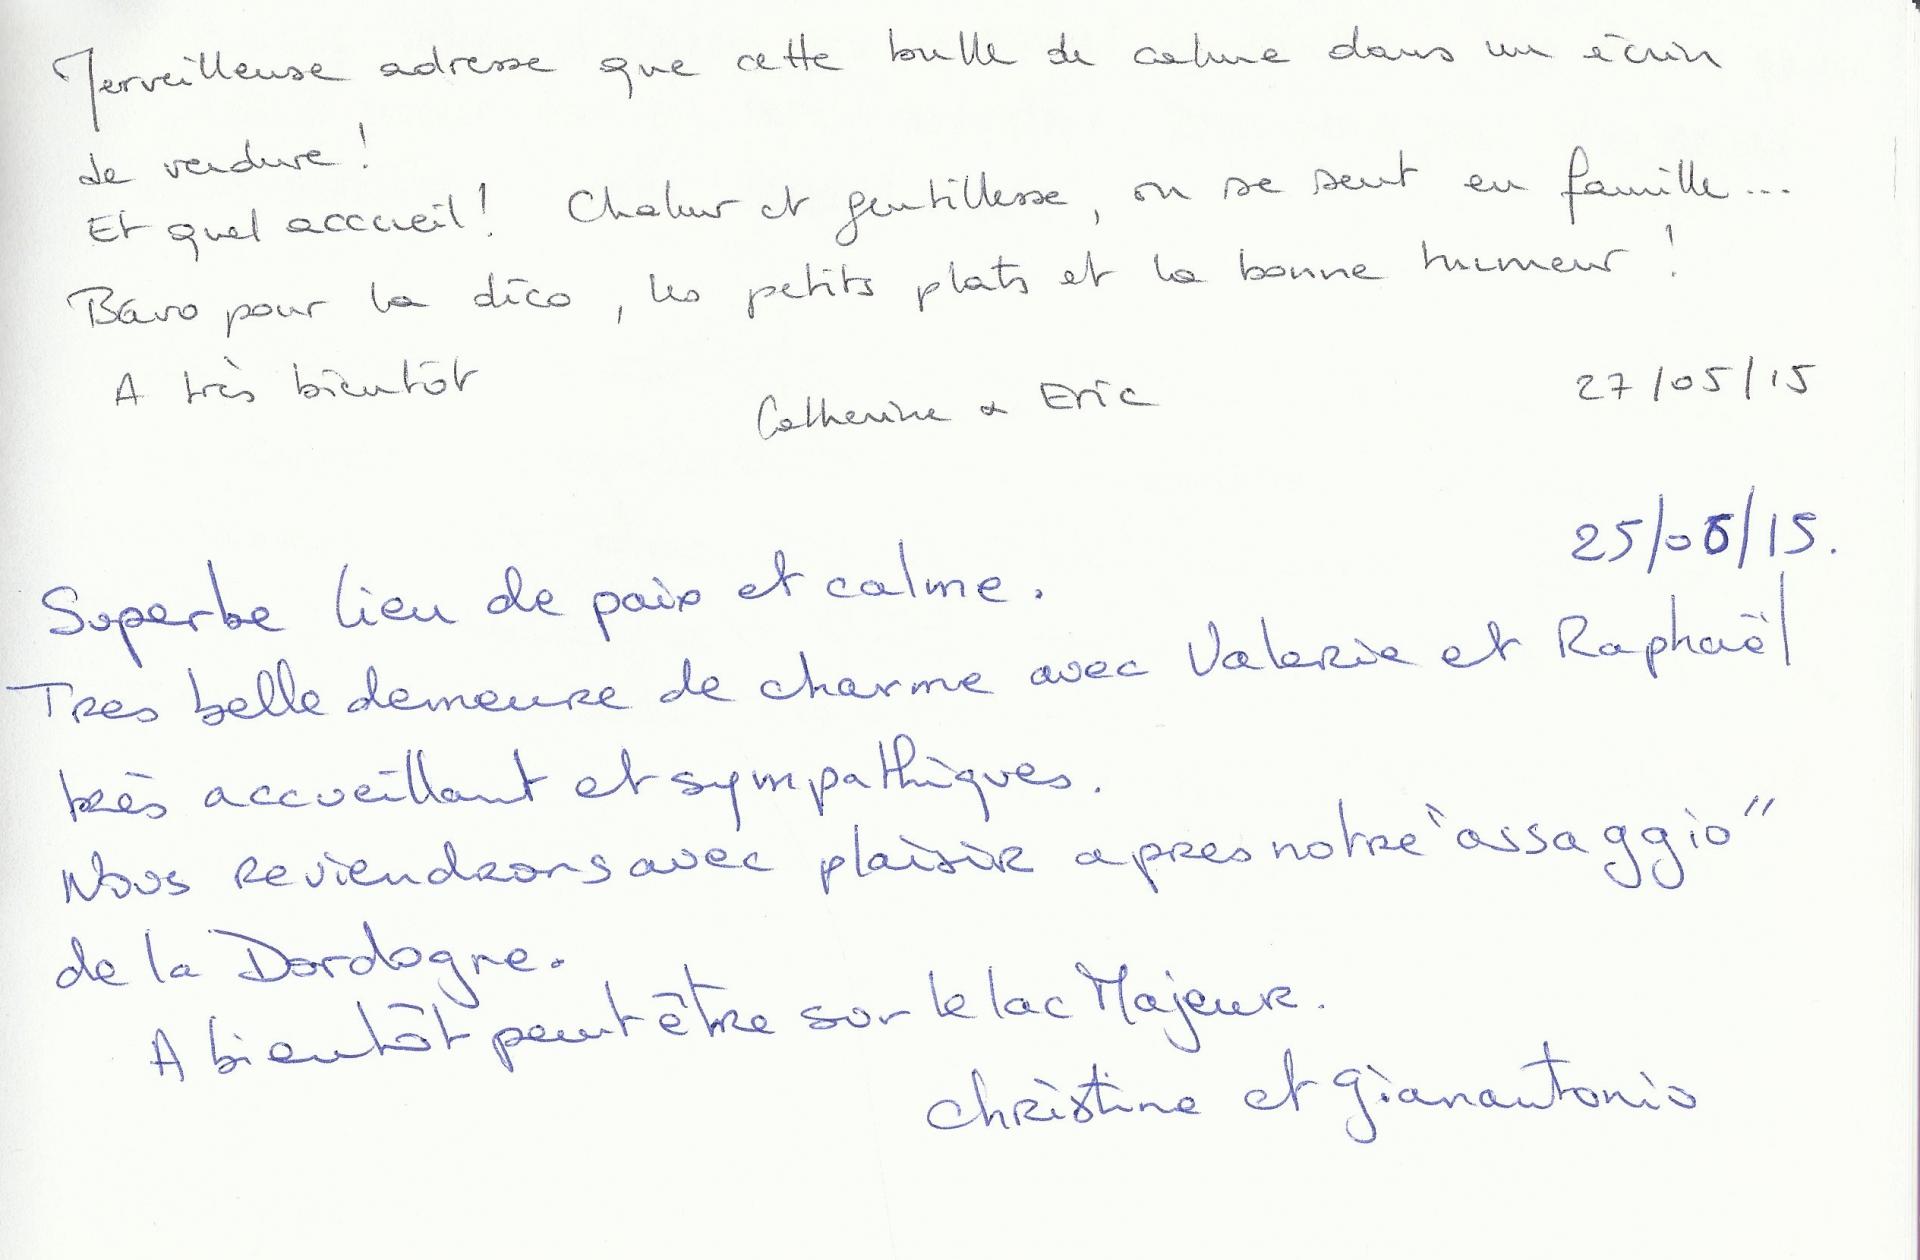 Merveilleuse adresse que cette bulle de calme dans un écrin
de verdure !
Et quel accueil ! Chaleur et gentillesse, on se sent en famille...
Bravo pour la déco, les petits plats et la bonne humeur !
A très bientôt
Catherine & Eric 27/05/15
25/06/15.
Superbe lieu de paix et calme.
Tres belle demeure de charme avec Valerie et Raphaël
très accueillant et sympathiques.
Nous reviendrons avec plaisir apres notre "assaggio"
de la Dordogne.
A bientôt peut être sur le lac Majeur.
christine et gianantonio